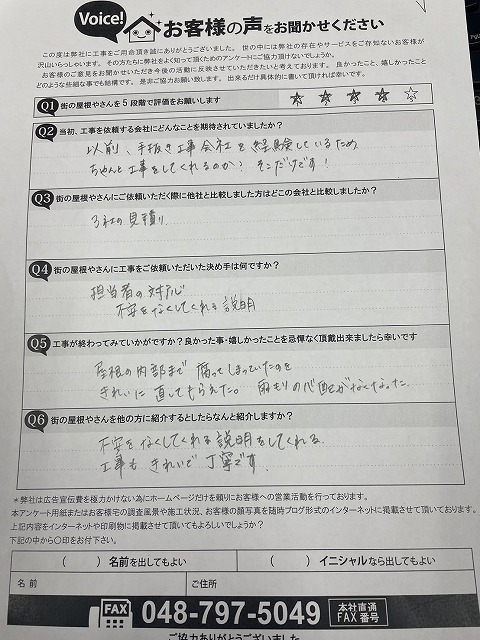 Voice!
お客様の声をお聞かせください
この度は弊社に工事をご用命頂き誠にありがとうございました。 世の中には弊社の存在やサービスをご存知ないお客様が
沢山いらっしゃいます。その方たちに弊社をよく知って頂くためのアンケートにご協力頂けないでしょうか。
お客様のご意見をお聞かせいただき今後の活動に反映させていただきたいと考えております。 良かったこと、嬉しかったこと
どのような些細な事でも結構です。 是非ご協力お願い致します。 出来るだけ具体的に書いて頂ければ幸いです。
Q1 街の屋根やさんを5段階で評価をお願いします
☆ ☆ ☆ ☆ ☆
Q2 当初、工事を依頼する会社にどんなことを期待されていましたか?
以前、手抜き工事会社を経験しているため
ちゃんと工事をしてくれるのか? そこだけです!
Q3 街の屋根やさんにご依頼いただく際に他社と比較しました方はどこの会社と比較しましたか?
3社の見積り
Q4 街の屋根やさんに工事をご依頼いただいた決め手は何ですか?
担当者の対応
不安をなくしてくれる説明
Q5 工事が終わってみていかがですか?良かった事・嬉しかったことを忌憚なく頂戴出来ましたら幸いです
屋根の内部まで腐ってしまっていたのを
きれいに直してもらえた。 雨もりの心配がなくなった.
Q6 街の屋根やさんを他の方に紹介するとしたらなんと紹介しますか?
不安をなくしてくれる説明をしてくれる.
工事もきれいで丁寧です.
*弊社は広告宣伝費を極力かけない為にホームページだけを頼りにお客様への営業活動を行っております。
本アンケート用紙またはお客様宅の調査風景や施工状況、お客様の顔写真を随時ブログ形式のインターネットに掲載させて頂いております。
上記内容をインターネットや印刷物に掲載させて頂いてもよろしいでしょうか?
下記の中から〇印をお付下さい。
( ) 名前を出してもよい
( ) イニシャルなら出してもよい
名 前
ご住所
FAX 048-797-5049 本社直通 FAX番号
ご協力ありがとうございました